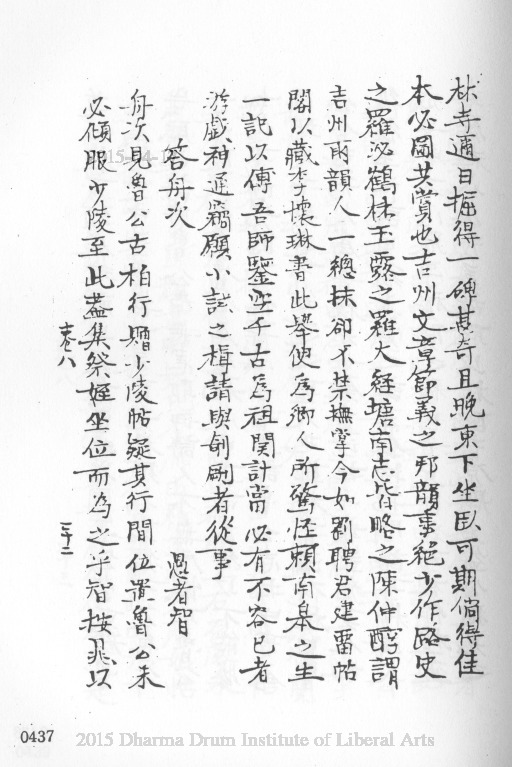 林寺邇日掘得一碑甚奇且晚東下坐臥可期倘得佳
本必圖共賞也吉州文章節義之邦韻事絕少作路史
之羅泌鶴林玉露之羅大經塘南志皆略之陳仲醇謂
吉州兩韻人一總抹卻不禁撫掌今如劉聘君建雷帖
閣以藏李懷琳書此舉便為鄉人所驚怪賴南皋之生
一記以傳吾師鑒空千古為祖関計當必有不容已者
游戲神通竊願小試之楫請與剞劂者從事
答舟次
愚者智
舟次見魯公古柏行贈少陵帖疑其行間位置魯公未
必傾服少陵至此蓋集祭姪坐位而為之乎智按晁以
卷八
三十二
0437
2015 Dharma Drum Institute of Liberal Arts